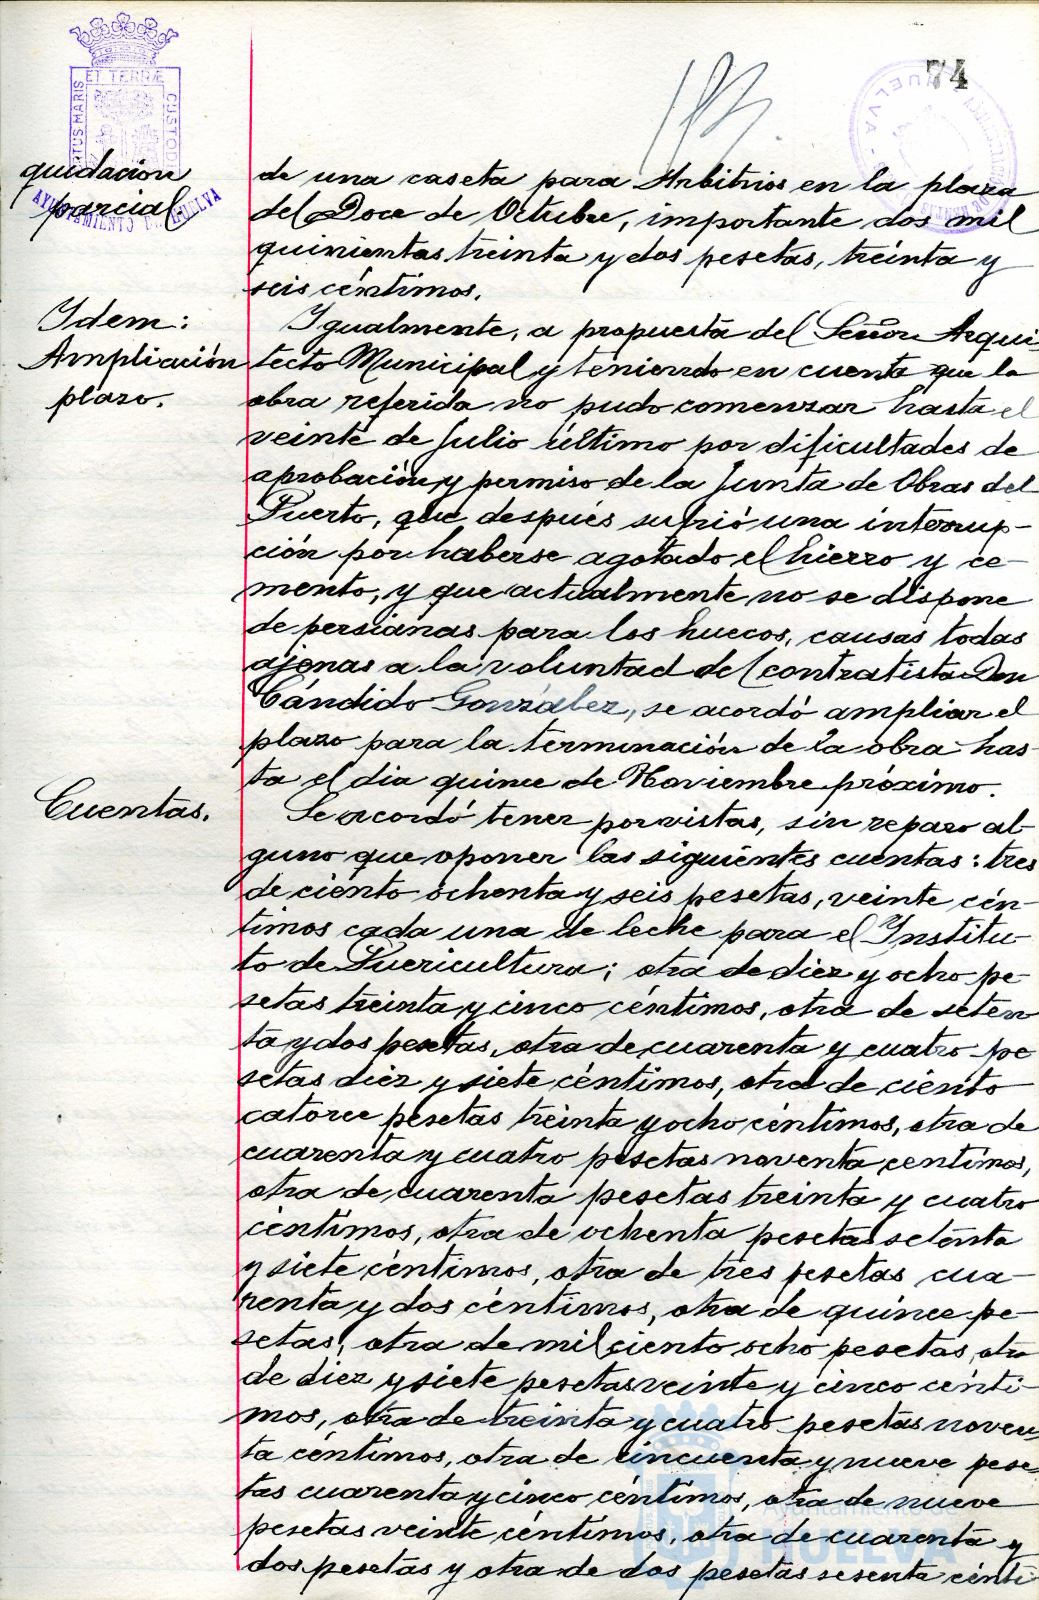 74
ET TERRÆ
CUSTODI
PORTUS MARIS
AYUNTAMIENTO DE HUELVA
HUELVA
quidacion
parcial
de una caseta para Arbitrios en la plaza
del Doce de Octubre, importante dos mil
quinientas treinta y dos pesetas, treinta y
seis céntimos.
Idem:
Ampliación
plazo.
Igualmente, a propuesta del Señor Arqui-
tecto Municipal y teniendo en cuenta que la
obra referida no pudo comenzar hasta el
veinte de Julio último por dificultades de
aprobación y permiso de la Junta de Obras del
Puerto, que después sufrió una interrup-
ción por haberse agotado el hierro y ce-
mento, y que actualmente no se dispone
de persianas para los huecos, causas todas
ajenas a la voluntad del contratista Don
Cándido González, se acordó ampliar el
plazo para la terminación de la obra has-
ta el dia quince de Noviembre próximo.
Cuentas.
Se acordó tener por vistas, sin reparo al-
guno que oponer las siguientes cuentas: tres
de ciento ochenta y seis pesetas, veinte cén-
timos cada una de leche para el Institu-
to de Puericultura; otra de diez y ocho pe-
setas treinta y cinco céntimos, otra de seten
ta y dos pesetas, otra de cuarenta y cuatro pe
setas diez y siete céntimos, otra de ciento
catorce pesetas treinta y ocho céntimos, otra de
cuarenta y cuatro pesetas noventa centimos,
otra de cuarenta pesetas treinta y cuatro
céntimos, otra de ochenta pesetas setenta
y siete céntimos, otra de tres pesetas cua-
renta y dos céntimos, otra de quince pe-
setas, otra de mil ciento ocho pesetas, otra
de diez y siete pesetas veinte y cinco cénti-
mos, otra de treinta y cuatro pesetas noven
ta céntimos, otra de cincuenta y nueve pese
tas cuarenta y cinco céntimos, otra de nueve
pesetas veinte céntimos, otra de cuarenta y
dos pesetas y otra de dos pesetas sesenta cénti
Ayuntamiento de
HUELVA